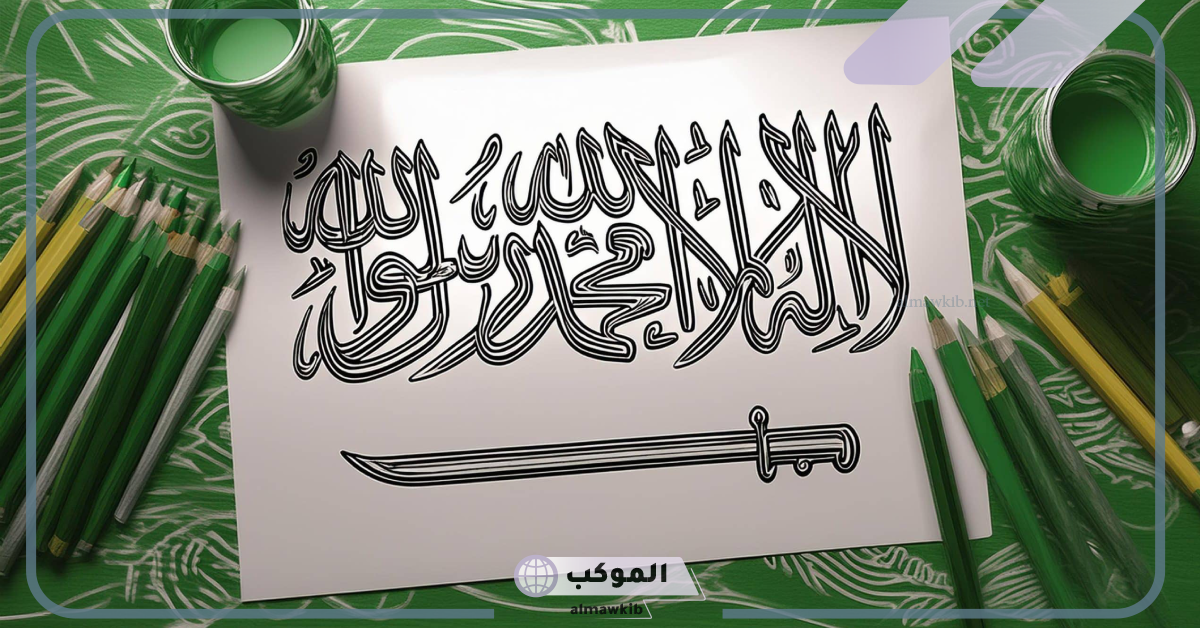 لا إله إلا الله محمد رسول الله
almawkib.net
الموكب
almawkib